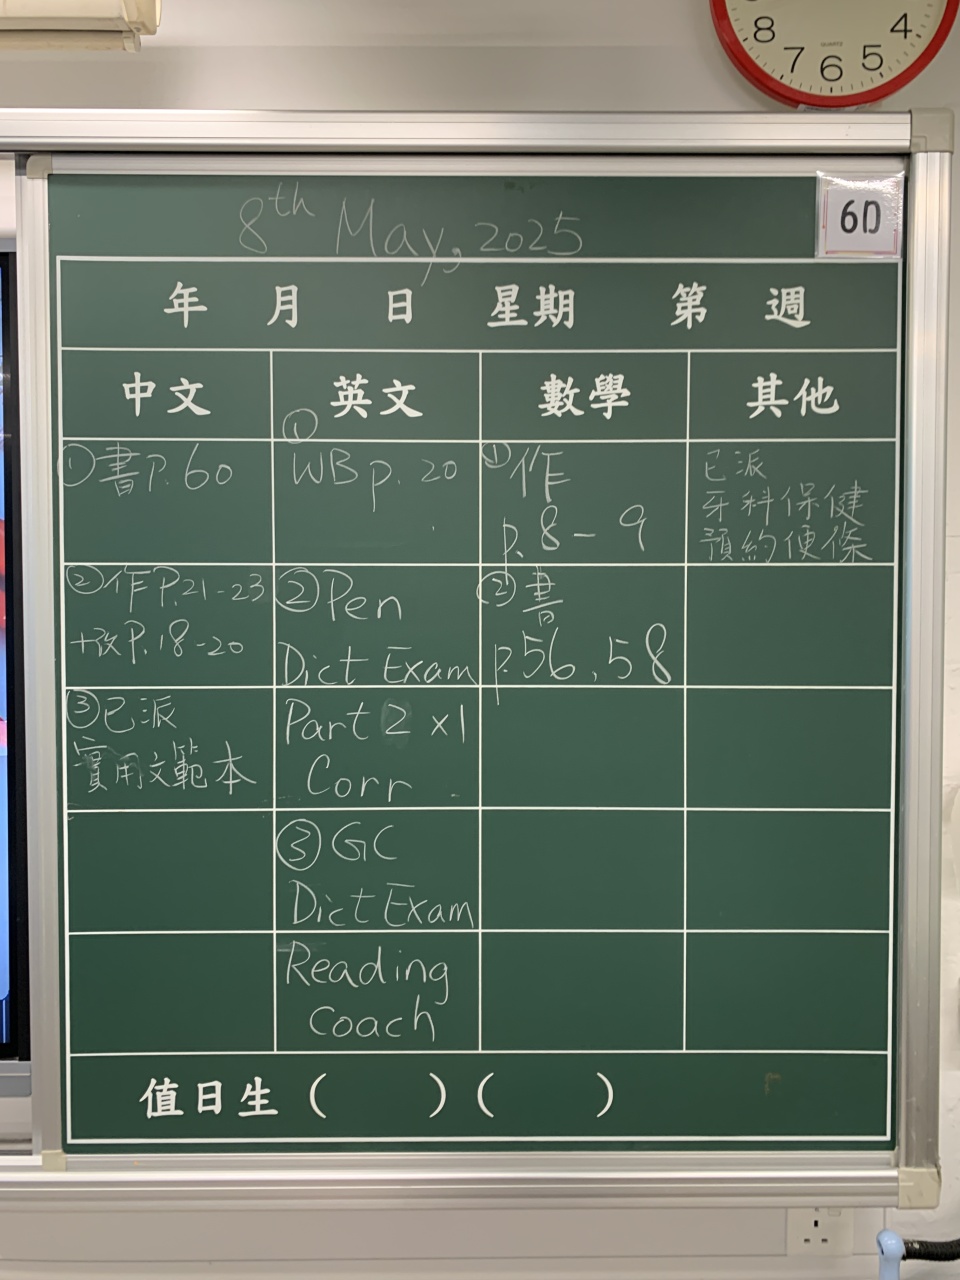 8 4
7 6 5
QUARTZ
8th May, 2025
6D
年 月 日 星期 第 週
中文 英文 數學 其他
① 書 P. 60
② 作 P. 21-23
+改 P. 18-20
③ 已派
實用文範本
①
WB p. 20
② Pen
Dict Exam
Part 2 x1
Corr
③ GC
Dict Exam
Reading
Coach
① 作
p. 8 - 9
② 書
p. 56, 58
已派
牙科保健
預約便條
值日生 ( ) ( )